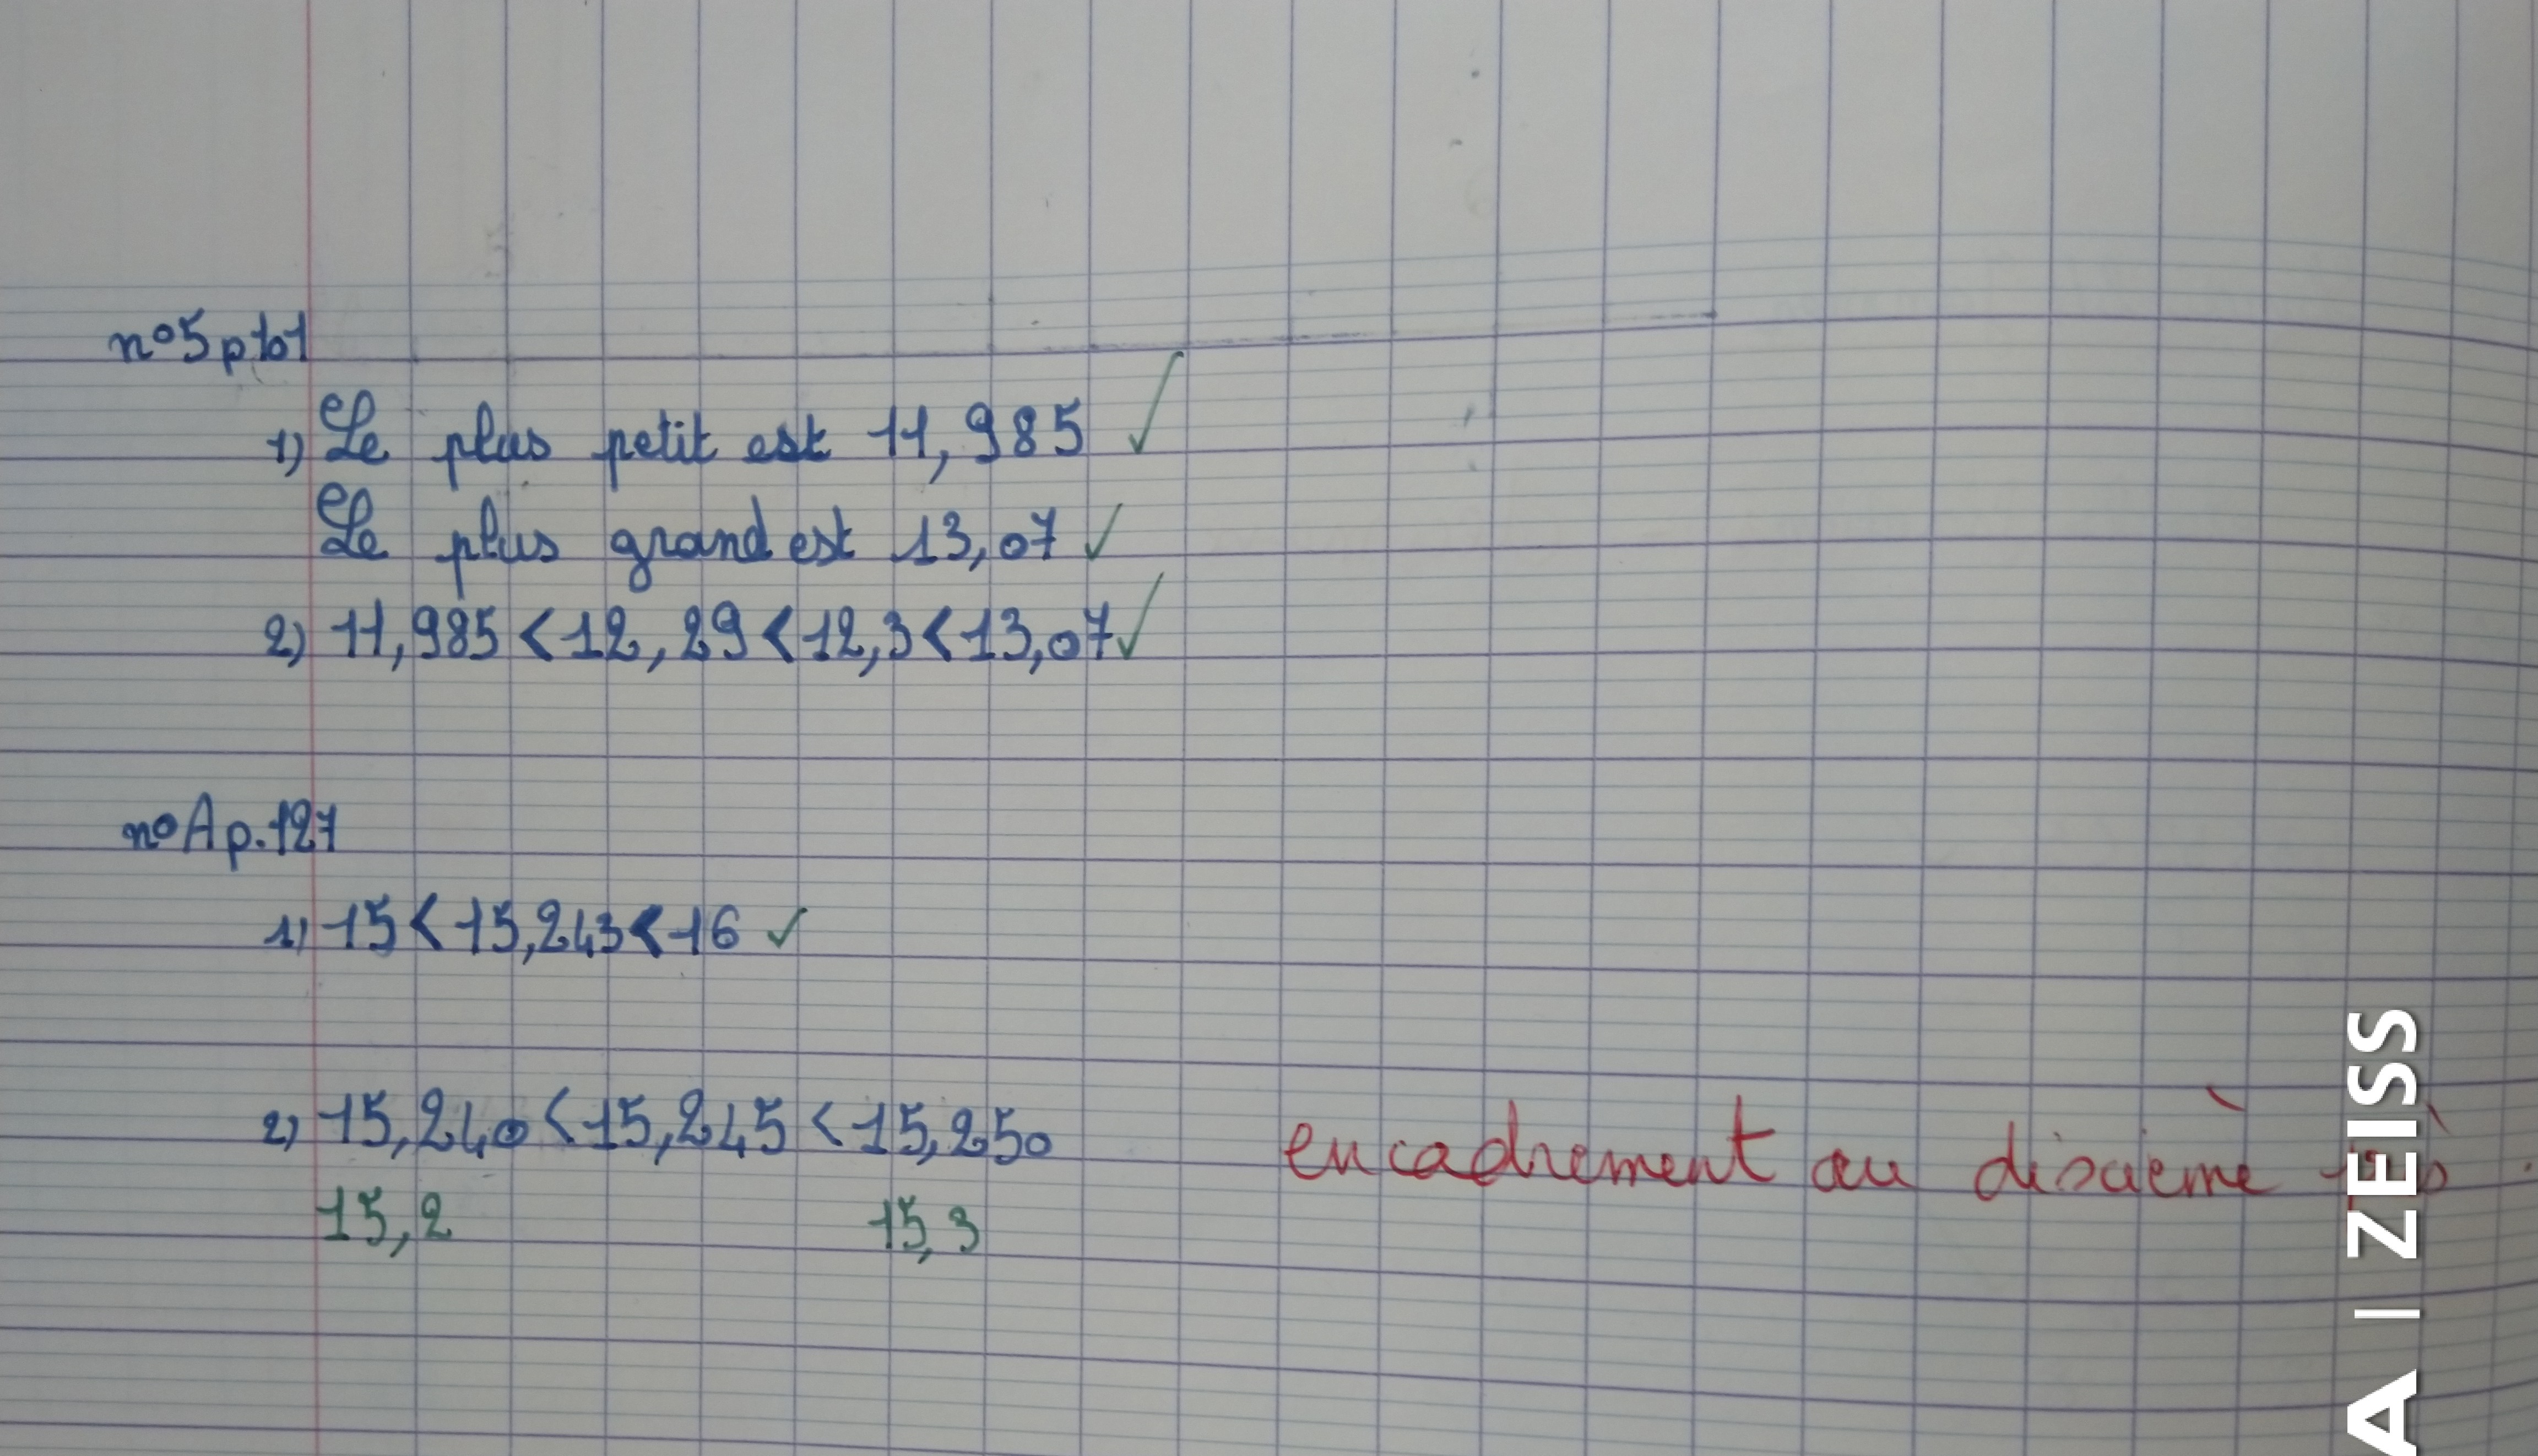 n°5 p101
1) Le plus petit est 11,985 ✓
Le plus grand est 13,07 ✓
2) 11,985 < 12,29 < 12,3 < 13,07 ✓
n°A p.127
1) 15 < 15,243 < 16 ✓
2) 15,240 < 15,245 < 15,250 encadrement au dixième
15,2 15,3
A | ZEISS